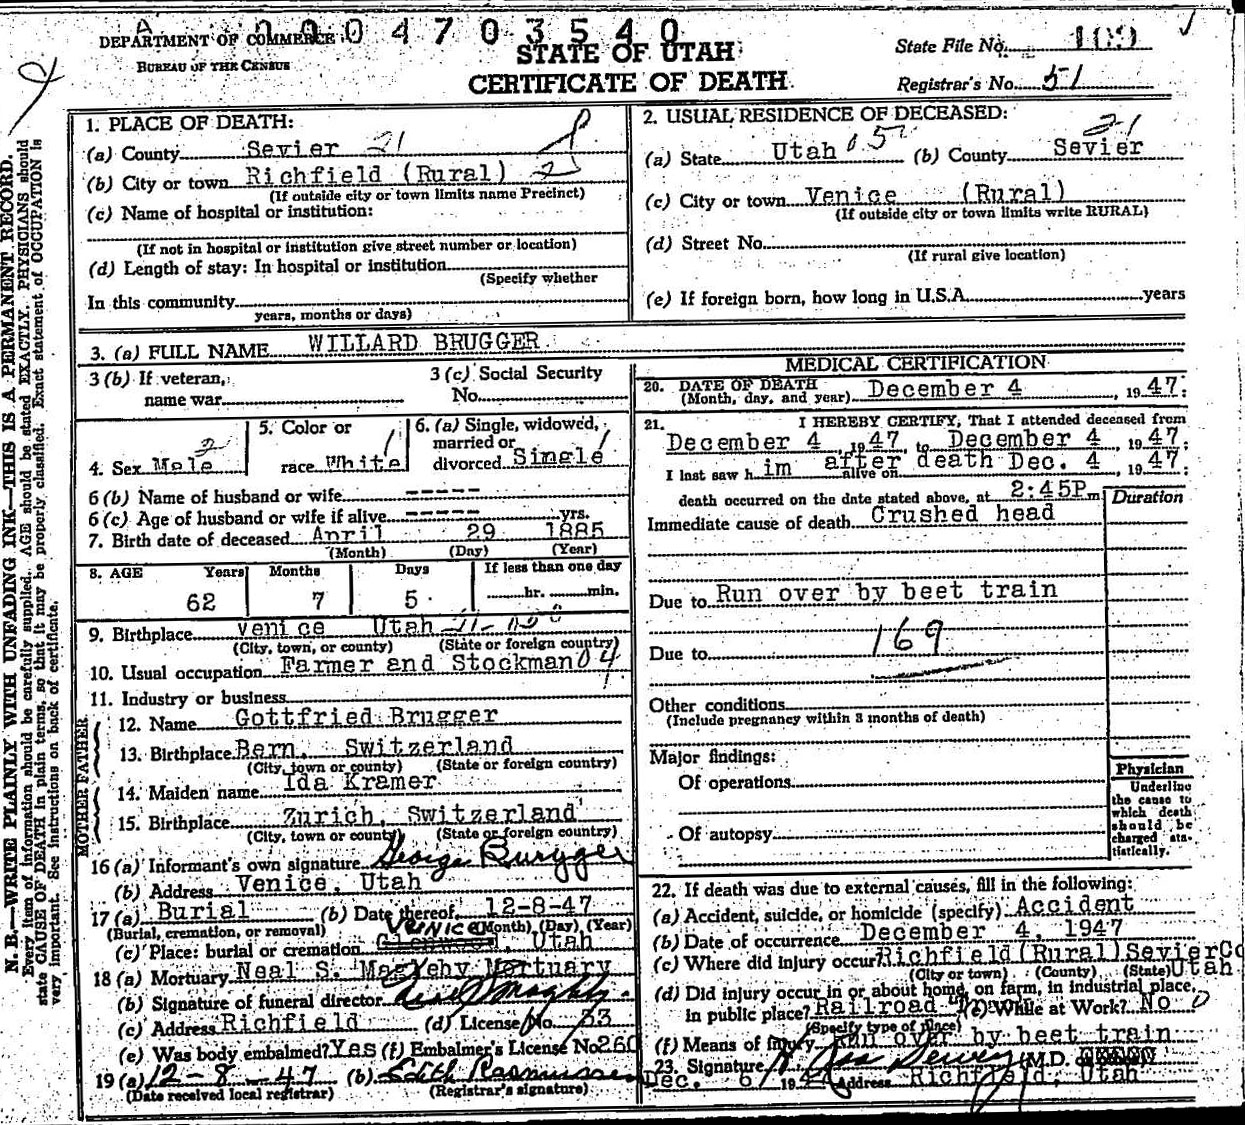 A 0004703540
DEPARTMENT OF COMMERCE
BUREAU OF THE CENSUS
STATE OF UTAH
CERTIFICATE OF DEATH
State File No. 169
Registrar's No. 51
N. B.—WRITE PLAINLY WITH UNFADING INK—THIS IS A PERMANENT RECORD.
Every item of information should be carefully supplied. AGE should be stated EXACTLY. PHYSICIANS should
state CAUSE OF DEATH in plain terms, so that it may be properly classified. Exact statement of OCCUPATION is
very important. See instructions on back of certificate.
1. PLACE OF DEATH:
(a) County Sevier 21
(b) City or town Richfield (Rural)
(If outside city or town limits name Precinct)
(c) Name of hospital or institution:
(If not in hospital or institution give street number or location)
(d) Length of stay: In hospital or institution
(Specify whether
In this community
years, months or days)
2. USUAL RESIDENCE OF DECEASED:
21
(a) State Utah 05 (b) County Sevier
(c) City or town Venice (Rural)
(If outside city or town limits write RURAL)
(d) Street No.
(If rural give location)
(e) If foreign born, how long in U.S.A. years
3. (a) FULL NAME WILLARD BRUGGER
3 (b) If veteran,
name war
3 (c) Social Security
No.
4. Sex Male 2
5. Color or
race White 1
6. (a) Single, widowed,
married or
divorced Single 1
6 (b) Name of husband or wife -----
6 (c) Age of husband or wife if alive ----- yrs.
7. Birth date of deceased April 29 1885
(Month) (Day) (Year)
8. AGE Years Months Days If less than one day
62 7 5 hr. min.
9. Birthplace Venice Utah
(City, town, or county) (State or foreign country)
10. Usual occupation Farmer and Stockman 04
11. Industry or business
FATHER
12. Name Gottfried Brugger
13. Birthplace Bern, Switzerland
(City, town or county) (State or foreign country)
MOTHER
14. Maiden name Ida Kramer
15. Birthplace Zurich, Switzerland
(City, town or county) (State or foreign country)
16 (a) Informant's own signature George Brugger
(b) Address Venice, Utah
17 (a) Burial (b) Date thereof 12-8-47
(Burial, cremation, or removal) (Month) (Day) (Year)
VENICE
(c) Place: burial or cremation Glenwood, Utah
18 (a) Mortuary Neal S. Magleby Mortuary
(b) Signature of funeral director Neal S Magleby
(c) Address Richfield (d) License No. 33
(e) Was body embalmed? Yes (f) Embalmer's License No 260
19 (a) 12-8-47 (b) Edith Rasmussen
(Date received local registrar) (Registrar's signature)
MEDICAL CERTIFICATION
20. DATE OF DEATH
(Month, day, and year) December 4, 1947.
21. I HEREBY CERTIFY, That I attended deceased from
December 4, 1947 to December 4, 1947.
I last saw him after death Dec. 4, 1947.
alive on
death occurred on the date stated above, at 2:45P m
Duration
Immediate cause of death Crushed head
Due to Run over by beet train
169
Due to
Other conditions
(Include pregnancy within 3 months of death)
Major findings:
Of operations
Of autopsy
Physician
Underline
the cause to
which death
should be
charged sta-
tistically.
22. If death was due to external causes, fill in the following:
(a) Accident, suicide, or homicide (specify) Accident
(b) Date of occurrence December 4, 1947
(c) Where did injury occur? Richfield (Rural) Sevier Co
(City or town) (County) (State) Utah
(d) Did injury occur in or about home, on farm, in industrial place,
in public place? Railroad (e) While at Work? No 0
(Specify type of place)
(f) Means of injury run over by beet train
23. Signature (M.D.
Dec. 6, 194 Address Richfield, Utah